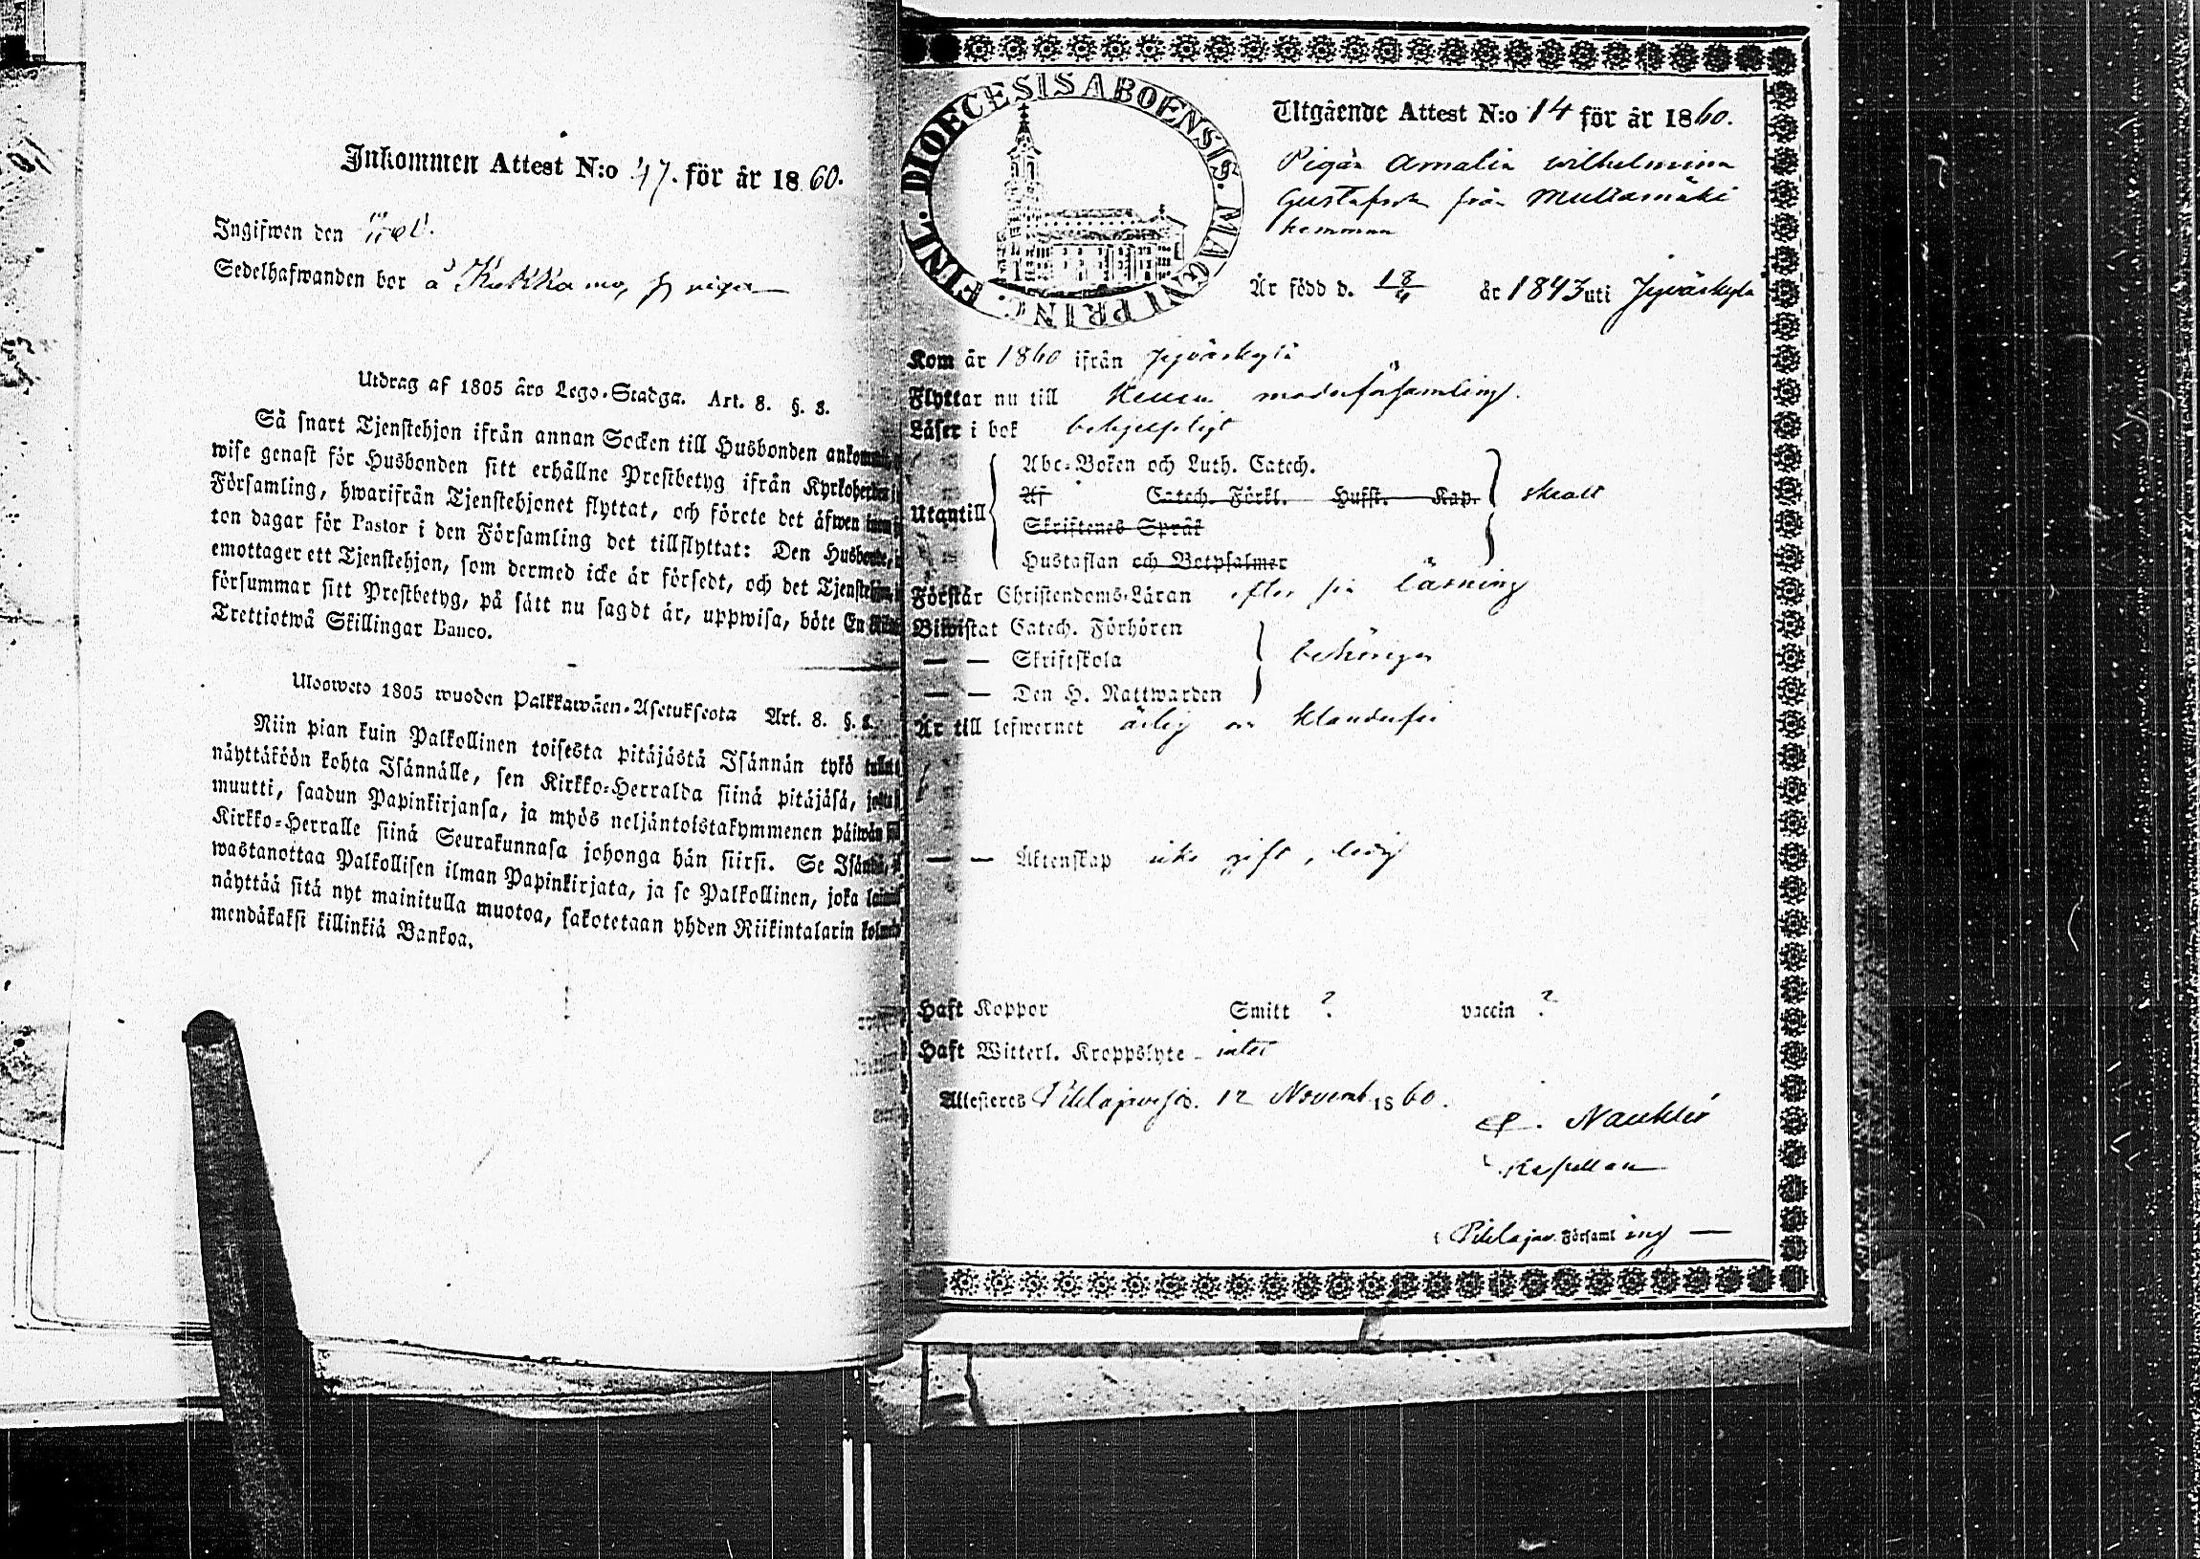 Inkommen Attest N:o 47. för år 1860.
Ingifwen den
Sedelhafwanden bor å Kukkamo, pigan
Utdrag af 1805 års Lego-Stadga. Art. 8. §. 8.
Så snart Tjenstehjon ifrån annan Socken till Husbonden
wise genast för Husbonden sitt erhållne Prestbetyg ifrån Kyrkoherden
Församling, hwarifrån Tjenstehjonet flyttat, och förete det äfwen
ton dagar för Pastor i den Församling det tillflyttat: Den Husbonde,
emottager ett Tjenstehjon, som dermed icke är försedt, och det Tjenstehjon,
försummar sitt Prestbetyg, på sätt nu sagdt är, uppwisa, böte En
Trettiotwå Skillingar Banco.
Ulosweto 1805 wuoden Palkkawäen-Asetuksesta Art. 8. §. 8.
Niin pian kuin Palkollinen toisesta pitäjästä Isännän tykö
näyttäköön kohta Isännälle, sen Kirkko-Herralda siinä pitäjäsä,
muutti, saadun Papinkirjansa, ja myös neljäntoistakymmenen päiwän
Kirkko-Herralle siinä Seurakunnasa johonga hän siirsi. Se Isäntä,
wastanottaa Palkollisen ilman Papinkirjata, ja se Palkollinen, joka
näyttää sitä nyt mainitulla muotoa, sakotetaan yhden Riikintalarin
mendäkaksi killinkiä Bankoa.
FINL. DIOECESIS ABOENSIS. MAGNI PRINC.
Utgående Attest N:o 14 för år 1860.
Pigan Amalia Wilhelmina
Gustafsdr från Multamäki
hemman
Är född d. 18/4 år 1843 uti Jyväskylä
Kom år 1860 ifrån Jyväskylä
Flyttar nu till Keuru moderförsamling.
Läser i bok behjelpligt
Utantill
Abc-Boken och Luth. Catech.
Af Catech. Förkl. Husst. Kap.
Skriftenes Språk
Hustaflan och Botpsalmer
Förstår Christendoms-Läran efter sin läsning
Biwistat Catech. Förhören
— — Skriftskola behörigen
— — Den H. Nattwarden
Är till lefwernet ärlig och klanderfri
— — Äktenskap icke gift, ledig
Haft Koppor Smitt ? vaccin ?
Haft Witterl. Kroppslyte - intet
Attesteres Pihlajavesi d. 12 Novemb 1860.
Nauklér
Kapellan
i Pihlajav. Församling —